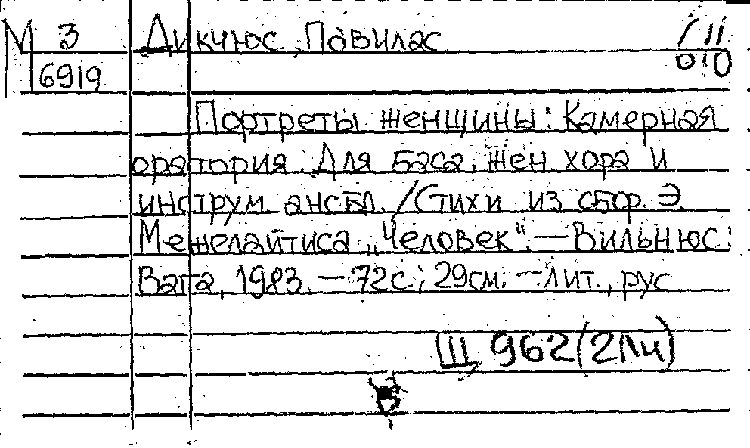 М 3 Дикчюс, Повилас
6919
Портреты женщины: Камерная
оратория. Для баса, жен хора и
инструм. ансбл. /Стихи из сбор. Э.
Межелайтиса „Человек“. — Вильнюс:
Вага, 1983. — 72с.; 29см. — лит., рус
Щ 962(2Ли)